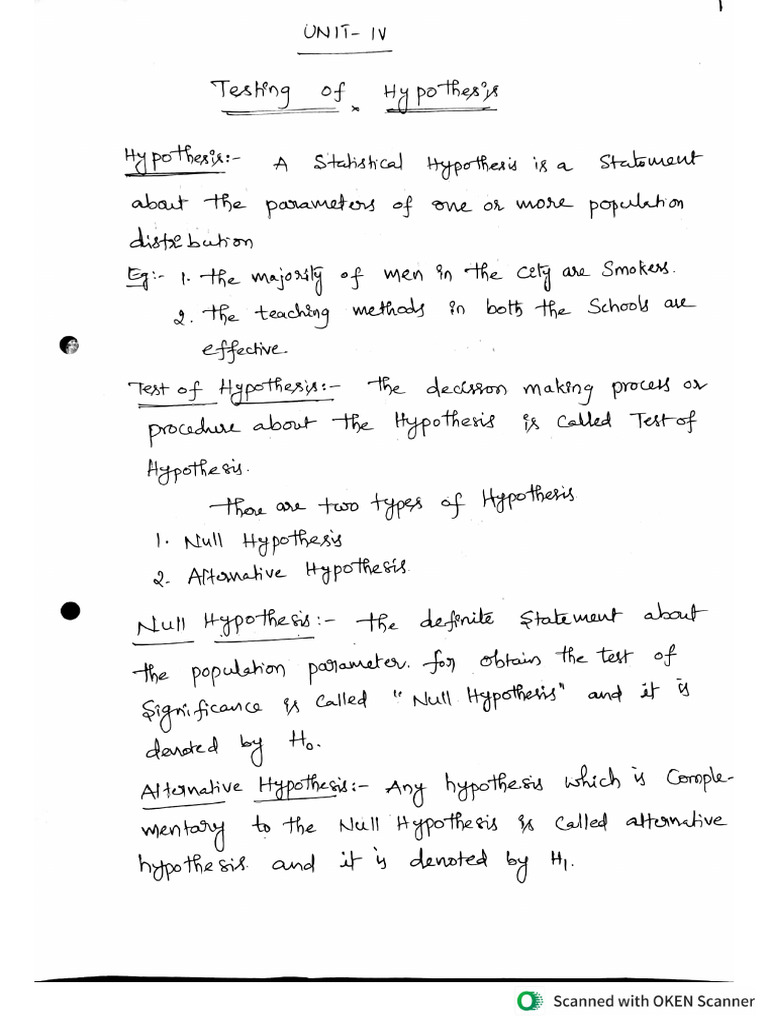 1
UNIT-IV
Testing of Hypothesis
Hypothesis:- A Statistical Hypothesis is a Statement
about the parameters of one or more population
distribution
Eg:- 1. The majority of men in the city are Smokers.
2. The teaching methods in both the Schools are
effective.
Test of Hypothesis:- The decision making process or
procedure about the Hypothesis is called Test of
Hypothesis.
There are two types of Hypothesis
1. Null Hypothesis
2. Alternative Hypothesis.
Null Hypothesis:- The definite Statement about
the population parameter. for obtain the test of
Significance is called "Null Hypothesis" and it is
denoted by H₀.
Alternative Hypothesis:- Any hypothesis which is Comple-
mentary to the Null Hypothesis is called alternative
hypothesis and it is denoted by H₁.
Scanned with OKEN Scanner